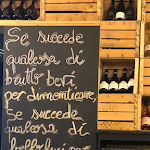 Se succede
qualcosa di
brutto bevi
per dimenticare,
Se succede
qualcosa di